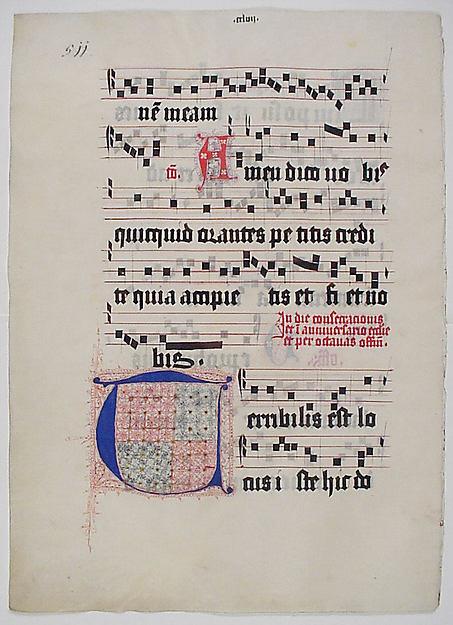 .cclvij.
nē meam
cō. Amen dico vobis
quicquid orantes petitis credi
te quia accipietis et fiet uo
bis.
In die consecracionis
et ī anniuersario eccīe
et per octauas offm̄.
Terribilis est lo
cus iste hic do